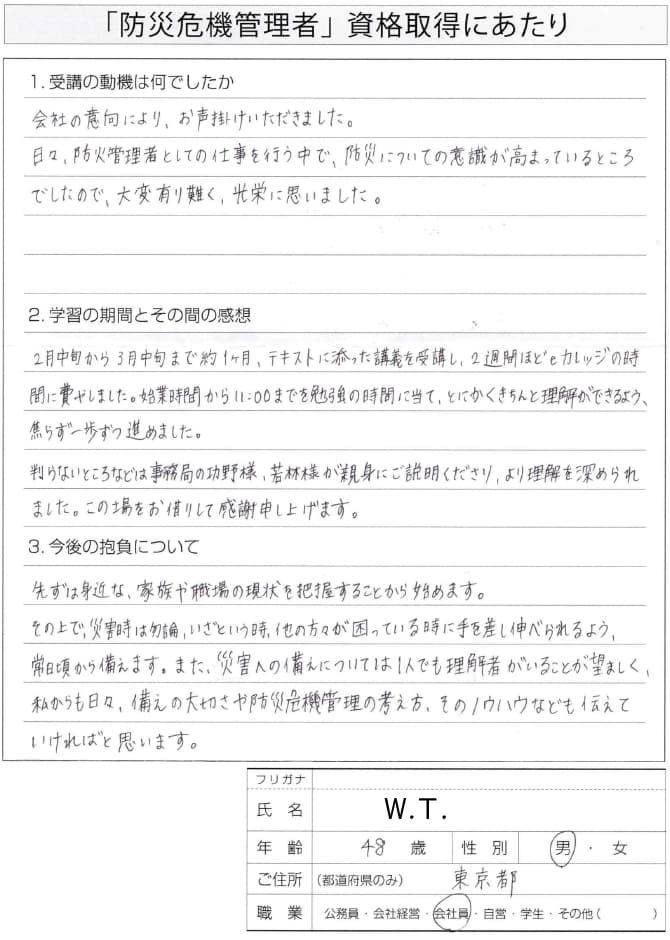 「防災危機管理者」資格取得にあたり
1.受講の動機は何でしたか
会社の意向により、お声掛けいただきました。
日々、防火管理者としての仕事を行う中で、防災についての意識が高まっているところ
でしたので、大変有り難く、光栄に思いました。
2.学習の期間とその間の感想
2月中旬から3月中旬まで約1ヶ月、テキストに添った講義を受講し、2週間ほどeカレッジの時
間に費やしました。始業時間から11:00までを勉強の時間に当て、とにかくきちんと理解ができるよう、
焦らず一歩ずつ進めました。
判らないところなどは事務局の功野様、若林様が親身にご説明くださり、より理解を深められ
ました。この場をお借りして感謝申し上げます。
3.今後の抱負について
先ずは身近な、家族や職場の現状を把握することから始めます。
その上で、災害時は勿論、いざという時、他の方々が困っている時に手を差し伸べられるよう、
常日頃から備えます。また、災害への備えについては1人でも理解者がいることが望ましく、
私からも日々、備えの大切さや防災危機管理の考え方、そのノウハウなども伝えて
いければと思います。
フリガナ
氏 名 W.T.
年 齢 48 歳 性 別 男・女
ご住所 (都道府県のみ) 東京都
職 業 公務員・会社経営・会社員・自営・学生・その他( )